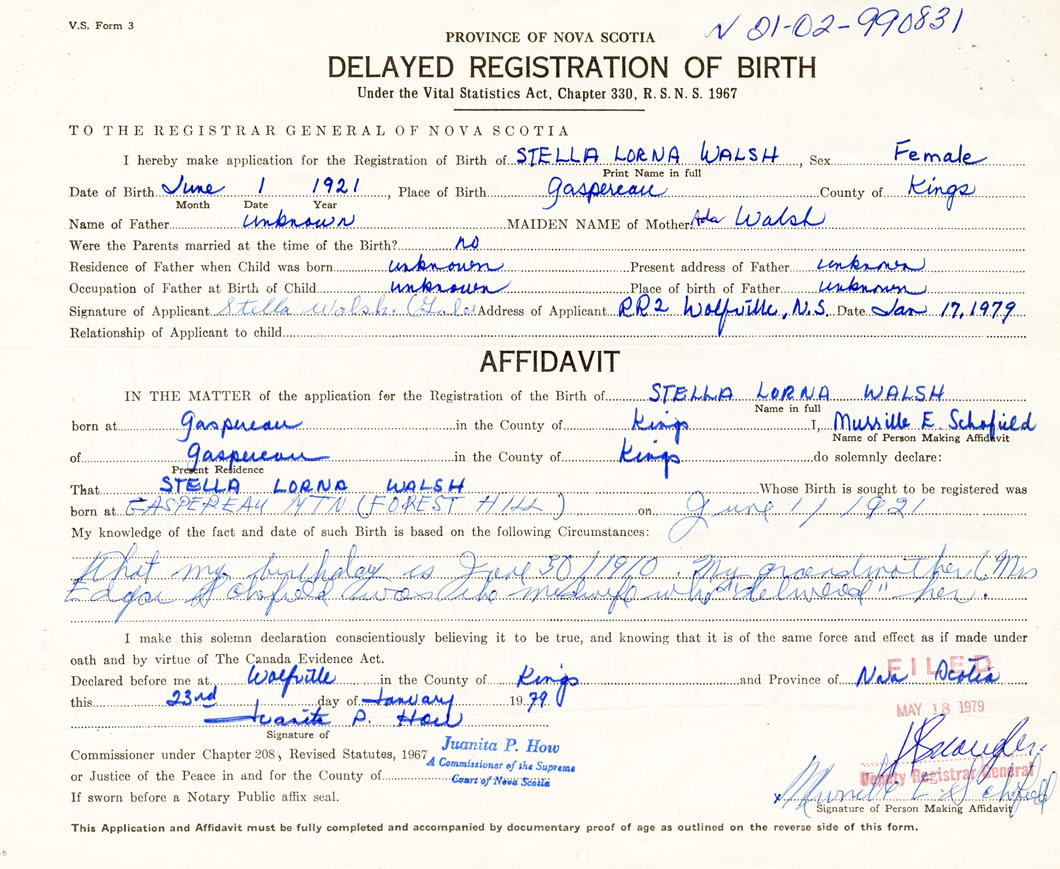 V.S. Form 3
N 21-02-990831
PROVINCE OF NOVA SCOTIA
DELAYED REGISTRATION OF BIRTH
Under the Vital Statistics Act, Chapter 330, R.S.N.S. 1967
TO THE REGISTRAR GENERAL OF NOVA SCOTIA
I hereby make application for the Registration of Birth of STELLA LORNA WALSH, Sex Female
Print Name in full
Date of Birth June 1 1921, Place of Birth Gaspereau County of Kings
Month Date Year
Name of Father unknown MAIDEN NAME of Mother Ada Walsh
Were the Parents married at the time of the Birth? no
Residence of Father when Child was born unknown Present address of Father unknown
Occupation of Father at Birth of Child unknown Place of birth of Father unknown
Signature of Applicant Stella Walsh Address of Applicant RR2 Wolfville, N.S. Date Jan 17, 1979
Relationship of Applicant to child
AFFIDAVIT
IN THE MATTER of the application for the Registration of the Birth of STELLA LORNA WALSH
Name in full
born at Gaspereau in the County of Kings I, Murrille E. Schofield
Name of Person Making Affidavit
of Gaspereau in the County of Kings do solemnly declare:
Present Residence
That STELLA LORNA WALSH Whose Birth is sought to be registered was
born at GASPEREAU MTN (FOREST HILL) on June 1/1921
My knowledge of the fact and date of such Birth is based on the following Circumstances:
That my birthday is June 30/1910. My grandmother (Mrs
Edgar Schofield was the midwife who "delivered" her.
I make this solemn declaration conscientiously believing it to be true, and knowing that it is of the same force and effect as if made under
oath and by virtue of The Canada Evidence Act.
Declared before me at Wolfville in the County of Kings and Province of Nova Scotia
FILED
this 23rd day of January 1979
MAY 18 1979
Juanita P. How
Signature of
Commissioner under Chapter 208, Revised Statutes, 1967
Juanita P. How
A Commissioner of the Supreme
Court of Nova Scotia
or Justice of the Peace in and for the County of
Deputy Registrar General
If sworn before a Notary Public affix seal.
x Murrille E Schofield
Signature of Person Making Affidavit
This Application and Affidavit must be fully completed and accompanied by documentary proof of age as outlined on the reverse side of this form.